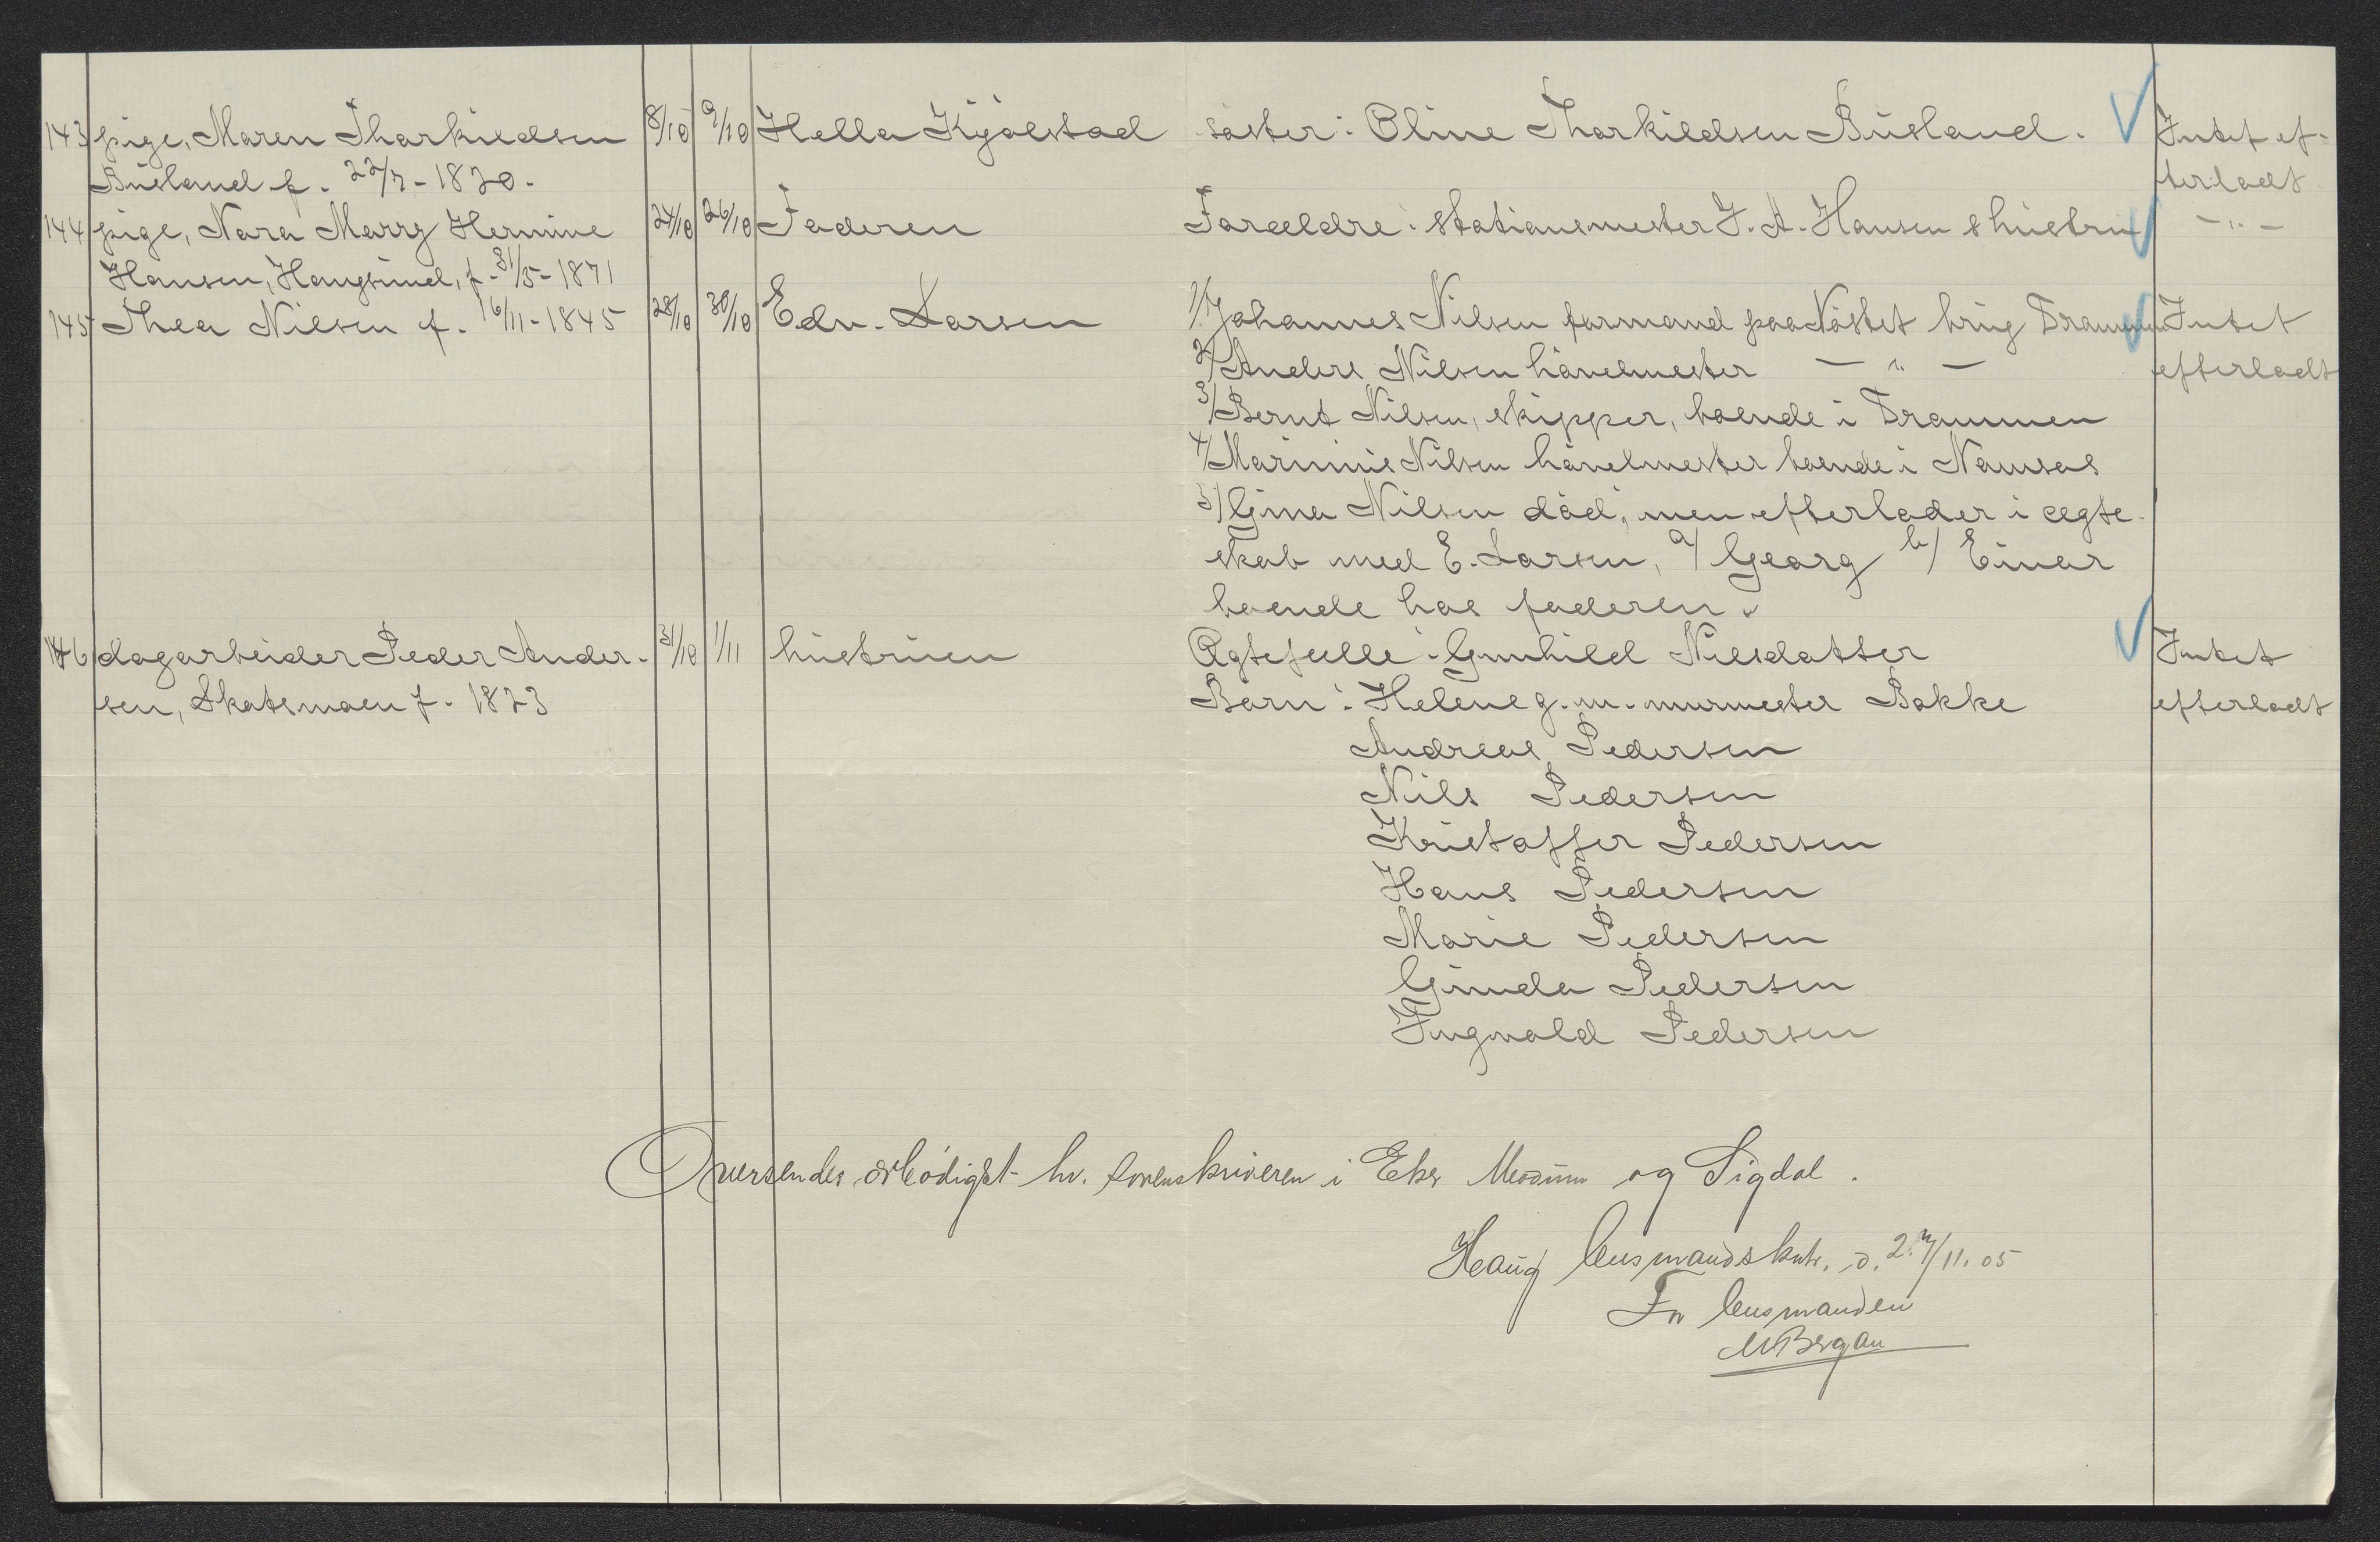 143 pige, Maren Thorkildsen 8/10 9/10 Hella Kjølstad søster: Oline Thorkildsen Busland. Intet ef-
Busland f. 22/7-1820. terladt
144 pige, Nora Marry Hermine 24/10 26/10 Faderen Forældre: stationsmester J. A. Hansen & hustru -"-
Hansen, Hougsund, f. 31/5-1871
145 Thea Nilsen f. 16/11-1845 28/10 30/10 Edv. Larsen 1/ Johannes Nilsen formand paa Nøstet brug Drammen Intet
2/ Anders Nilsen høvelmester -"- efterladt
3/ Bernt Nilsen, skipper, boende i Drammen
4/ Marinius Nilsen høvelmester boende i Namsos
5/ Gina Nilsen død, men efterlader i ægte-
skab med E. Larsen, a/ Georg b/ Einar
boende hos faderen.
146 dagarbeider Peder Ander- 31/10 1/11 hustruen Ægtefælle: Gunhild Nilsdatter Intet
sen, Skotsmoen f. 1823 Børn: Helene g. m. murmester Bakke efterladt
Andreas Pedersen
Nils Pedersen
Kristoffer Pedersen
Hans Pedersen
Marie Pedersen
Gunda Pedersen
Ingvald Pedersen
Oversendes ærbødigst hr. sorenskriveren i Eker Modum og Sigdal.
Haug lensmandskntr. d. 27/11. 05
For lensmanden
M Bergan